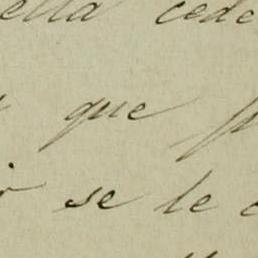 ella cede
que
se le